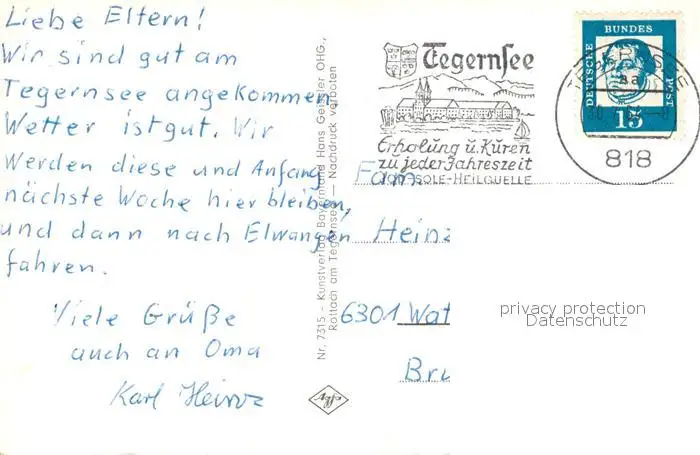 Liebe Eltern!
Wir sind gut am
Tegernsee angekommen
Wetter ist gut. Wir
werden diese und Anfang
nächste Woche hier bleiben,
und dann nach Elwangen
fahren.
Viele Grüße
auch an Oma
Karl Heinz
Nr. 7315 - Kunstverlag Bayernland Hans Geißler OHG.,
Rottach am Tegernsee — Nachdruck verboten
Agfa
Tegernsee
Erholung u. Kuren
zu jeder Jahreszeit
JOD-SOLE-HEILQUELLE
DEUTSCHE BUNDES POST
15
TEGERNSEE
aa
818
Fam.
Heinz
6301 Wat
Bru
privacy protection
Datenschutz